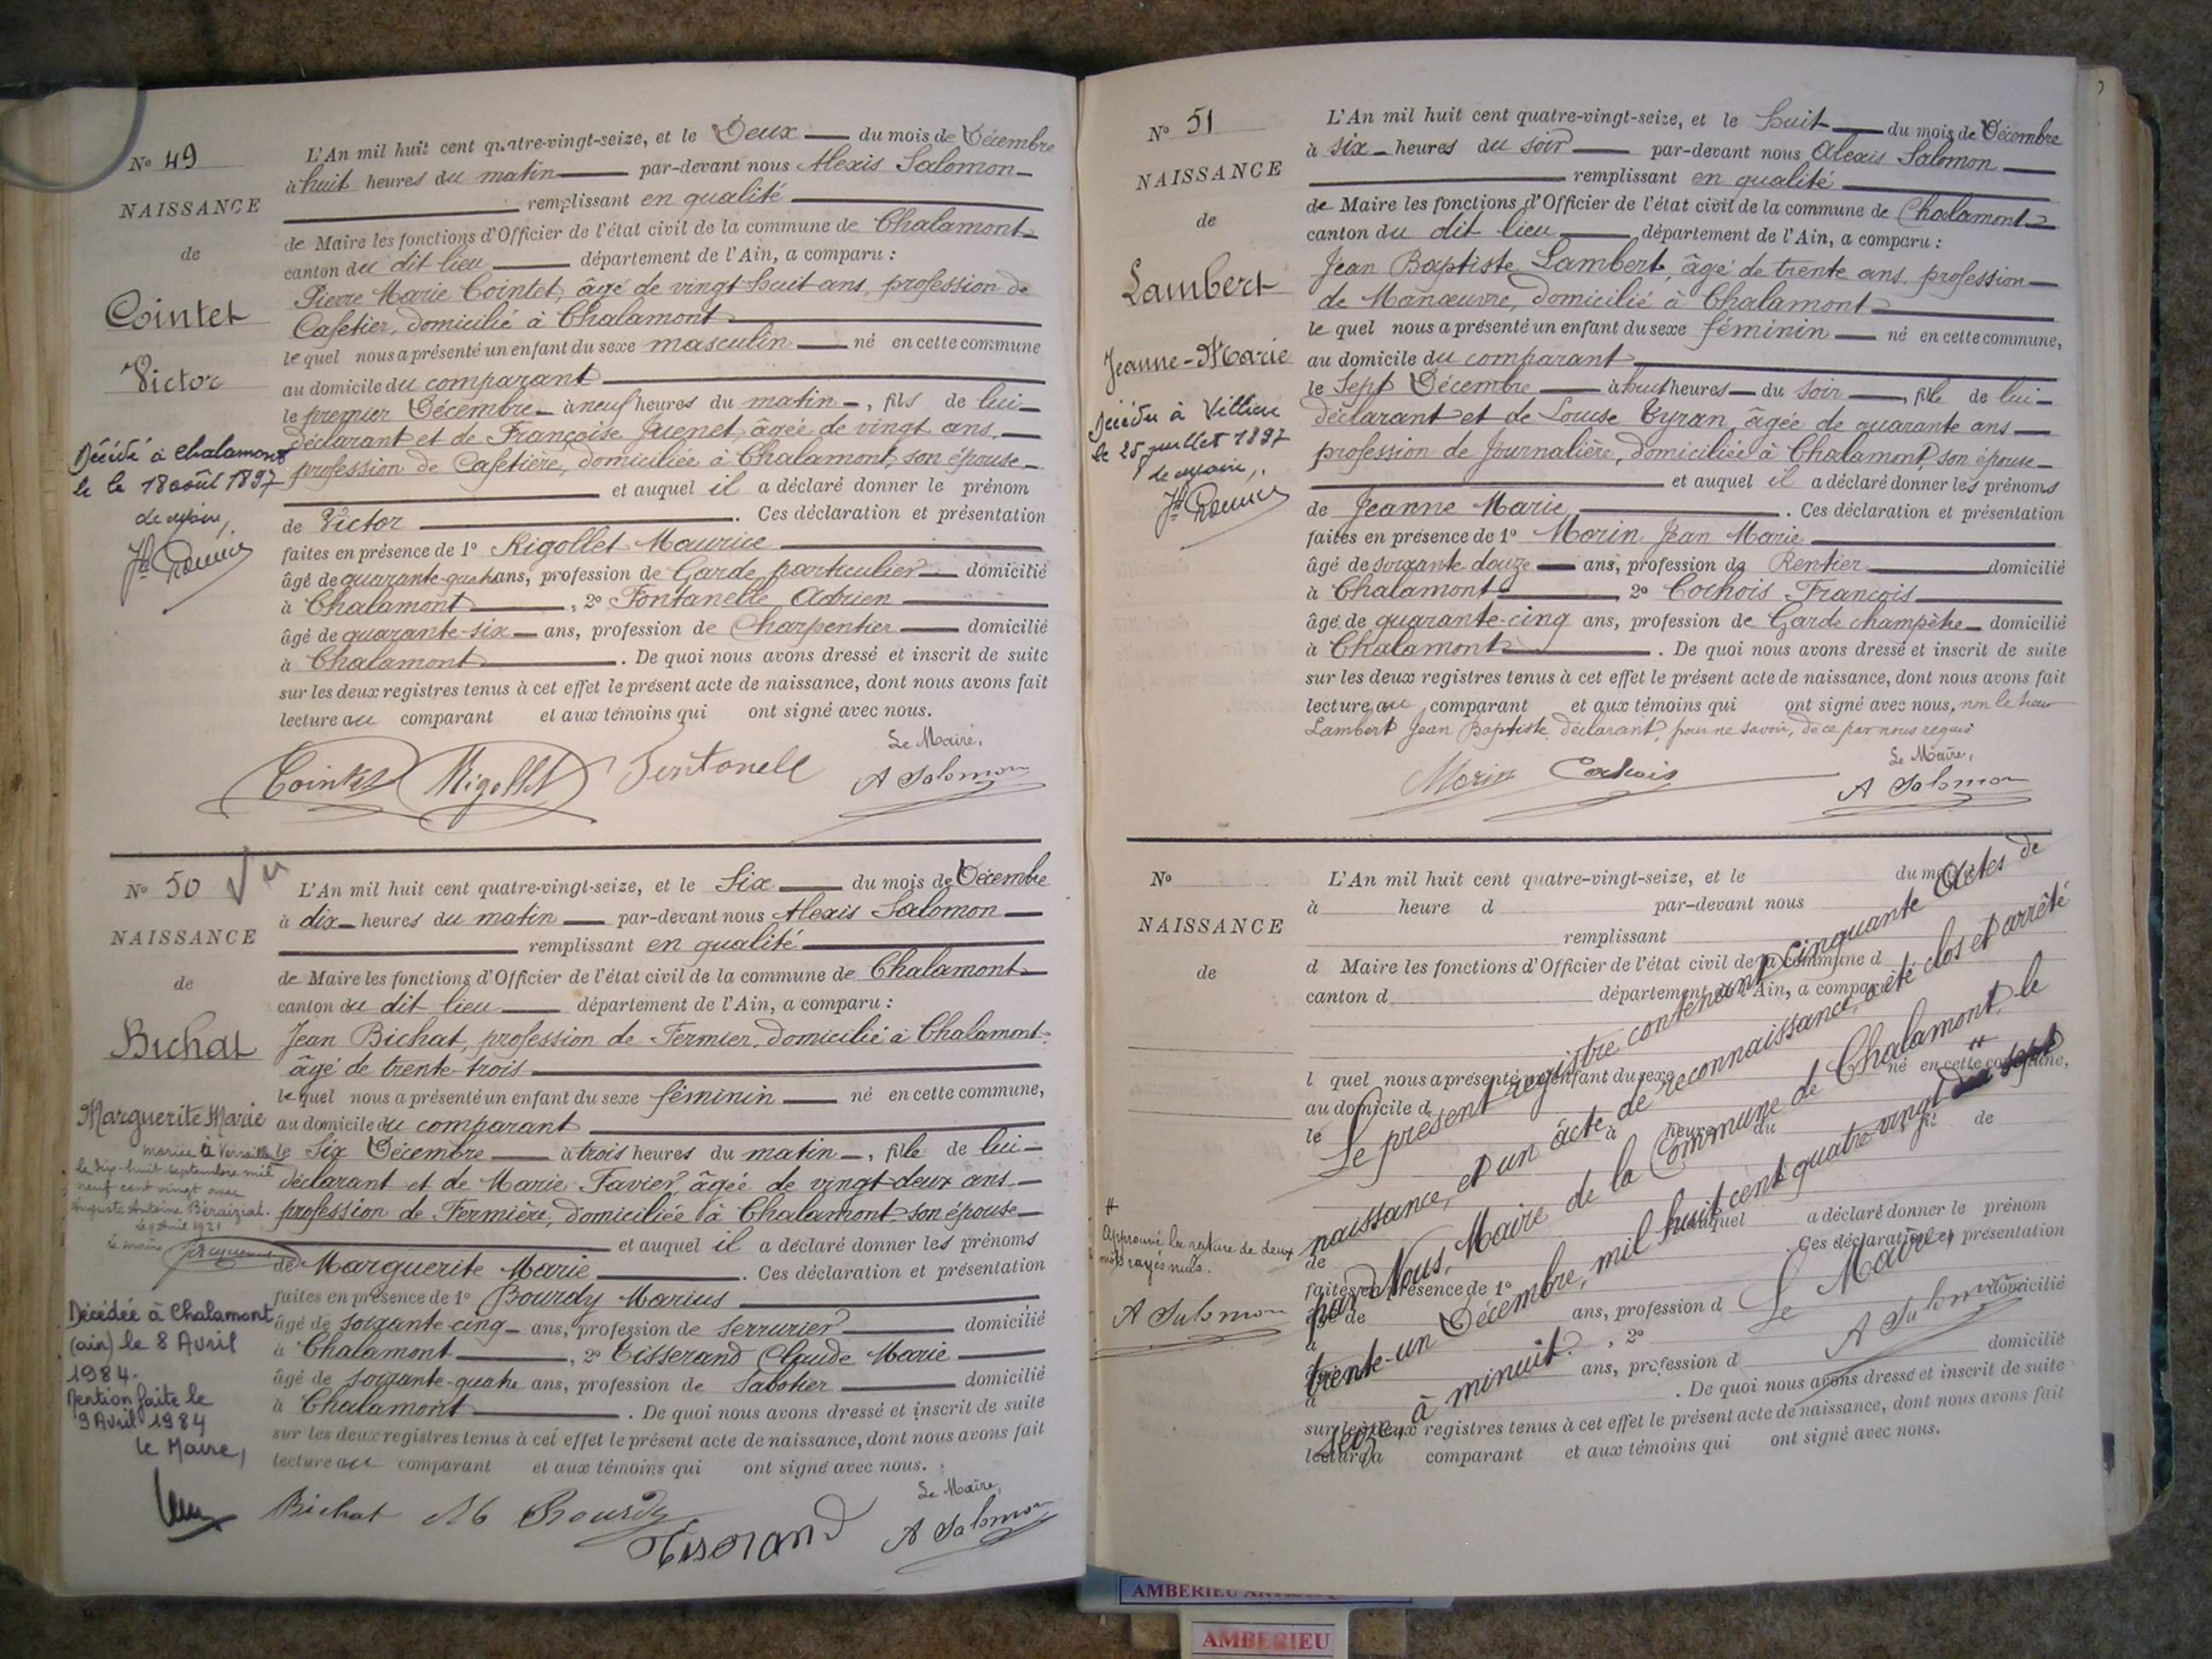 N° 49
NAISSANCE
de
Cointet
Victor
Décédé à Chalamont
le le 18 août 1897
L'An mil huit cent quatre-vingt-seize, et le Deux du mois de Décembre
à huit heures du matin par-devant nous Alexis Salomon
remplissant en qualité
de Maire les fonctions d'Officier de l'état civil de la commune de Chalamont
canton du dit lieu département de l'Ain, a comparu :
Pierre Marie Cointet, âgé de vingt huit ans, profession de
Cafetier, domicilié à Chalamont
le quel nous a présenté un enfant du sexe masculin né en cette commune
au domicile du comparant
le premier Décembre à neuf heures du matin, fils de lui
déclarant et de Françoise Juenet, âgée de vingt ans,
profession de Cafetière, domiciliée à Chalamont, son épouse
et auquel il a déclaré donner le prénom
de Victor. Ces déclaration et présentation
faites en présence de 1° Rigollet Maurice
âgé de quarante-quatre ans, profession de Garde particulier domicilié
à Chalamont, 2° Fontanelle Adrien
âgé de quarante-six ans, profession de Charpentier domicilié
à Chalamont. De quoi nous avons dressé et inscrit de suite
sur les deux registres tenus à cet effet le présent acte de naissance, dont nous avons fait
lecture au comparant et aux témoins qui ont signé avec nous.
Le Maire,
Cointet Rigollet Fontanell A Salomon
N° 50 Vu
NAISSANCE
de
Bichat
Marguerite Marie
mariée à Versailles
le dix-huit septembre mil
neuf cent vingt avec
Auguste Antoine Béraizial.
Le 9 Avril 1921
Le maire
Décédée à Chalamont
(ain) le 8 Avril
1984.
Mention faite le
9 Avril 1984
Le Maire,
L'An mil huit cent quatre-vingt-seize, et le Six du mois de Décembre
à dix heures du matin par-devant nous Alexis Salomon
remplissant en qualité
de Maire les fonctions d'Officier de l'état civil de la commune de Chalamont
canton du dit lieu département de l'Ain, a comparu :
Jean Bichat, profession de Fermier, domicilié à Chalamont,
âgé de trente-trois
le quel nous a présenté un enfant du sexe féminin né en cette commune,
au domicile du comparant
le Six Décembre à trois heures du matin, fille de lui
déclarant et de Marie Favier, âgée de vingt-deux ans
profession de Fermière, domiciliée à Chalamont, son épouse
et auquel il a déclaré donner les prénoms
de Marguerite Marie. Ces déclaration et présentation
faites en présence de 1° Bourdy Marius
âgé de soixante-cinq ans, profession de serrurier domicilié
à Chalamont, 2° Tisserand Claude Marie
âgé de soixante-quatre ans, profession de Sabotier domicilié
à Chalamont. De quoi nous avons dressé et inscrit de suite
sur les deux registres tenus à cet effet le présent acte de naissance, dont nous avons fait
lecture au comparant et aux témoins qui ont signé avec nous.
Le Maire,
Bichat Bourdy Tiserand A Salomon
N° 51
NAISSANCE
de
Lambert
Jeanne-Marie
le 25 juillet 1897
L'An mil huit cent quatre-vingt-seize, et le huit du mois de Décembre
à six heures du soir par-devant nous Alexis Salomon
remplissant en qualité
de Maire les fonctions d'Officier de l'état civil de la commune de Chalamont
canton du dit lieu département de l'Ain, a comparu :
Jean Baptiste Lambert, âgé de trente ans, profession
de Manœuvre, domicilié à Chalamont
le quel nous a présenté un enfant du sexe féminin né en cette commune,
au domicile du comparant
le Sept Décembre à huit heures du soir, fille de lui
déclarant et de Louise Tyran, âgée de quarante ans
profession de Journalière, domiciliée à Chalamont, son épouse
et auquel il a déclaré donner les prénoms
de Jeanne Marie. Ces déclaration et présentation
faites en présence de 1° Morin Jean Marie
âgé de soixante douze ans, profession de Rentier domicilié
à Chalamont, 2° Cochois François
âgé de quarante-cinq ans, profession de Garde champêtre domicilié
à Chalamont. De quoi nous avons dressé et inscrit de suite
sur les deux registres tenus à cet effet le présent acte de naissance, dont nous avons fait
lecture au comparant et aux témoins qui ont signé avec nous, non le sieur
Lambert Jean Baptiste, déclarant, pour ne savoir, de ce par nous requis
Le Maire,
Morin Cochois A Salomon
N°
NAISSANCE
de
L'An mil huit cent quatre-vingt-seize, et le du mois de
à heure d par-devant nous
remplissant
d Maire les fonctions d'Officier de l'état civil de la commune d
canton d département de l'Ain, a comparu
l quel nous a présenté un enfant du sexe né en cette commune,
au domicile d
le à heure du fi de
auquel a déclaré donner le prénom
de. Ces déclaration et présentation
faites en présence de 1°
âgé de ans, profession d domicilié
à, 2°
ans, profession d domicilié
à. De quoi nous avons dressé et inscrit de suite
sur les deux registres tenus à cet effet le présent acte de naissance, dont nous avons fait
lecture a comparant et aux témoins qui ont signé avec nous.
Le présent registre contenant cinquante Actes de
naissance, et un âcte de reconnaissance, a été clos et arrêté
par Nous, Maire de la Commune de Chalamont, le
trente-un Décembre, mil huit cent quatre vingt
seize, à minuit.
Le Maire,
A Salomon
Approuvé la rature de deux
mots rayés nuls.
A Salomon
AMBERIEU
AMBERIEU